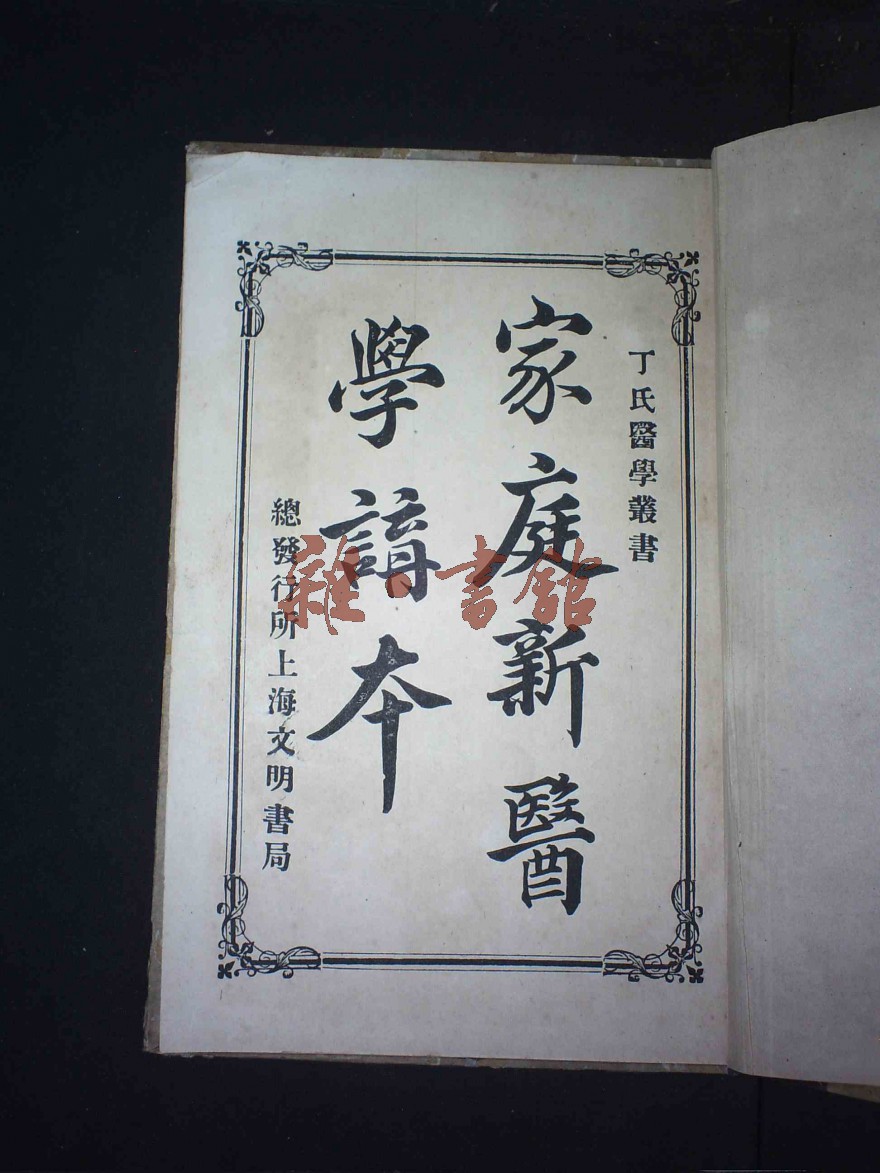 丁氏醫學叢書
家庭新醫
學講本
總發行所上海文明書局
雜·書館